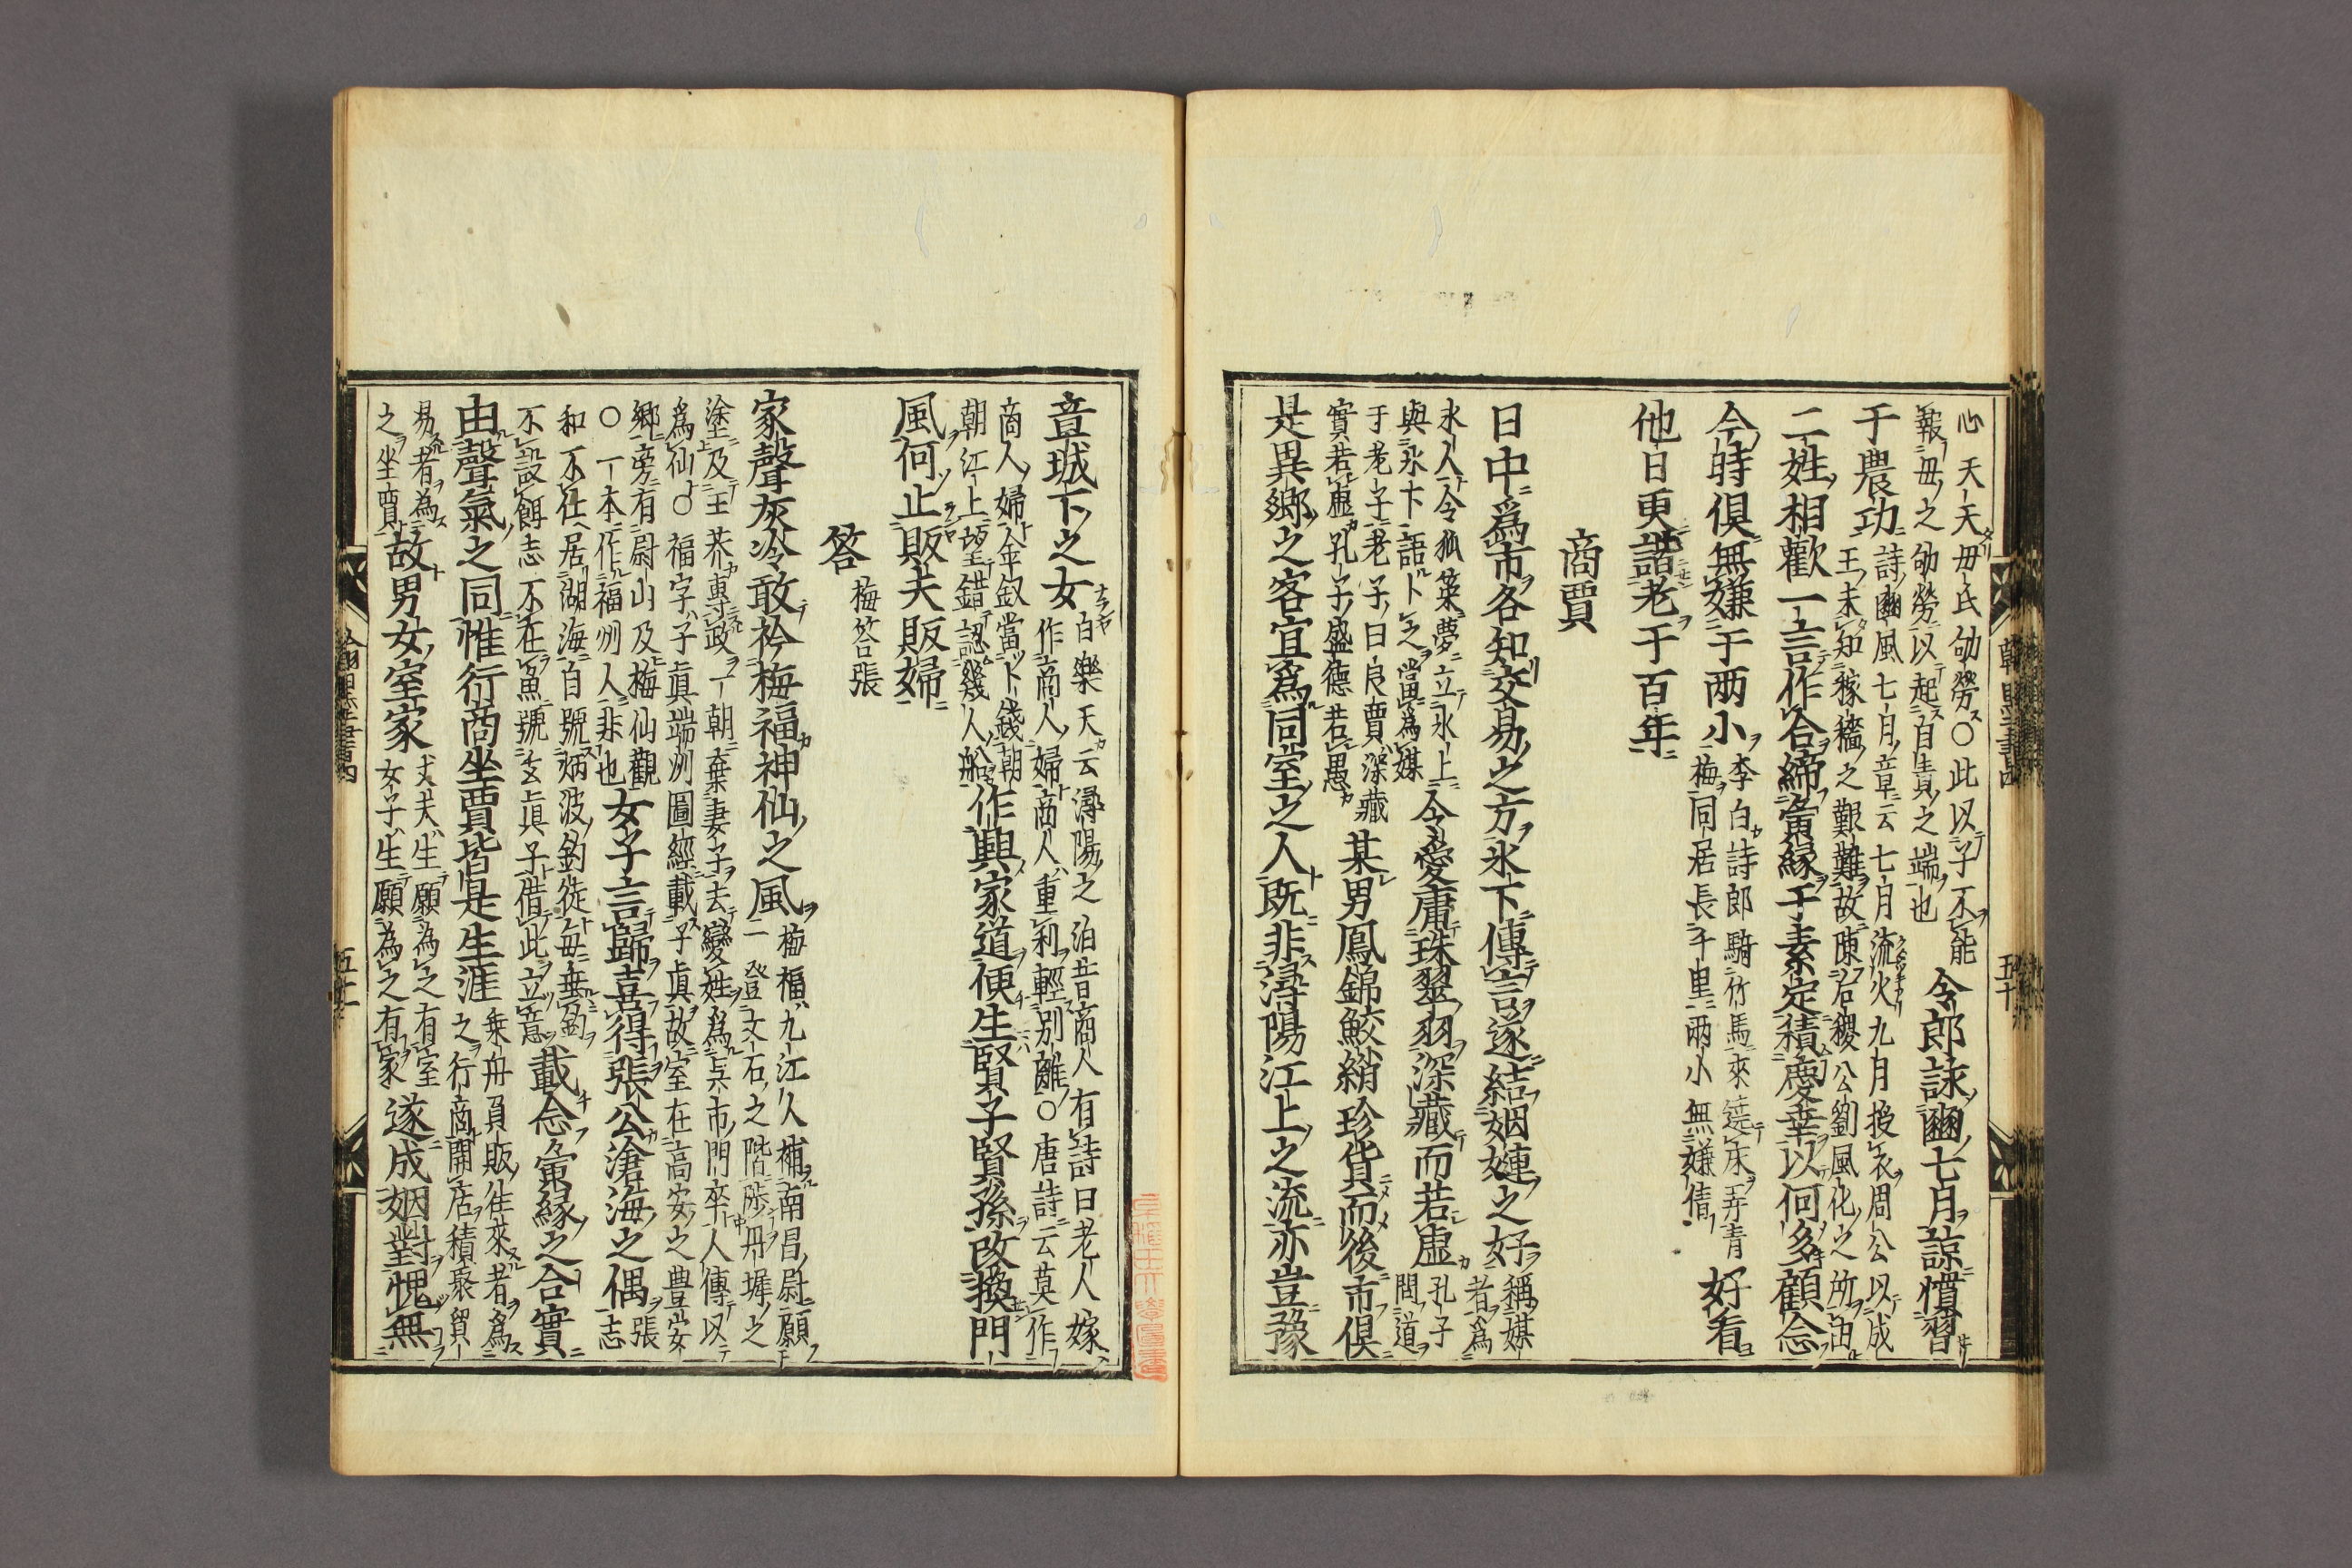 心天天毋氏劬勞○此以子不能
報毋之劬勞以起自責之端也
令郎詠豳七月諒慣習
于農功
詩豳風七月章云七月流火九月授衣周公以成
王未知稼穡之艱難故陳后稷公劉風化之所由
二姓相歡一言作合締寅緣于素定積慶幸以何多顧念
今時俱無嫌于两小
李白詩郎騎竹馬來遶床弄青
梅同居長千里兩小無嫌倩
好看
他日更諧老于百年
商賈
日中爲市各知交易之方氷下傳言遂結姻連之好
稱媒
者爲
氷人令狐策夢立氷上
與氷下語卜之當爲媒
令愛庸珠翠羽深藏而若虛
孔子
問道
于老子老子曰良賈深藏
實若虛孔子盛德若愚
某男鳳錦鮫綃珍貨而後市俱
是異鄉之客宜爲同室之人既非潯陽江上之流亦豈豫
章城下之女
白樂天云潯陽之泊昔商人有詩曰老人嫁
作商人婦商人重利輕別離○唐詩云莫作
商人婦金釵當卜錢朝
朝江上望錯認幾人船
作興家道便生賢子賢孫改換門
風何止販夫販婦
答
梅答張
家聲灰冷敢衿梅福神仙之風
梅福九江人補南昌尉願
一登文石之階陟丹墀之
塗及王莽專政一朝棄妻子去變姓爲吳市門卒人傳以
爲仙○福字子眞端州圖經載子眞故室在高安之豊安
鄉旁有尉山及梅仙觀
○一本作福州人非也
女子言歸喜得張公滄海之偶
張
志
和不仕居湖海自號炳波釣徒每垂釣
不設餌志不在魚號玄眞子借此立意
載念寅緣之合實
由聲氣之同惟行商坐賈皆是生涯
乗舟負販徃來者爲
之行商開店積聚貿
易者為
之坐賈
故男女室家
丈夫生願為之有室
女子生願為之有家
遂成姻對愧無